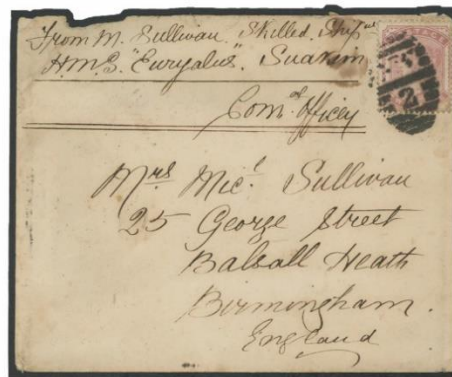 From M. Sullivan. Skilled. Ship
H.M.S. "Euryalus". Suakim
Com'd'g Officer
Mrs Micl. Sullivan
25 George Street
Balsall Heath
Birmingham.
England